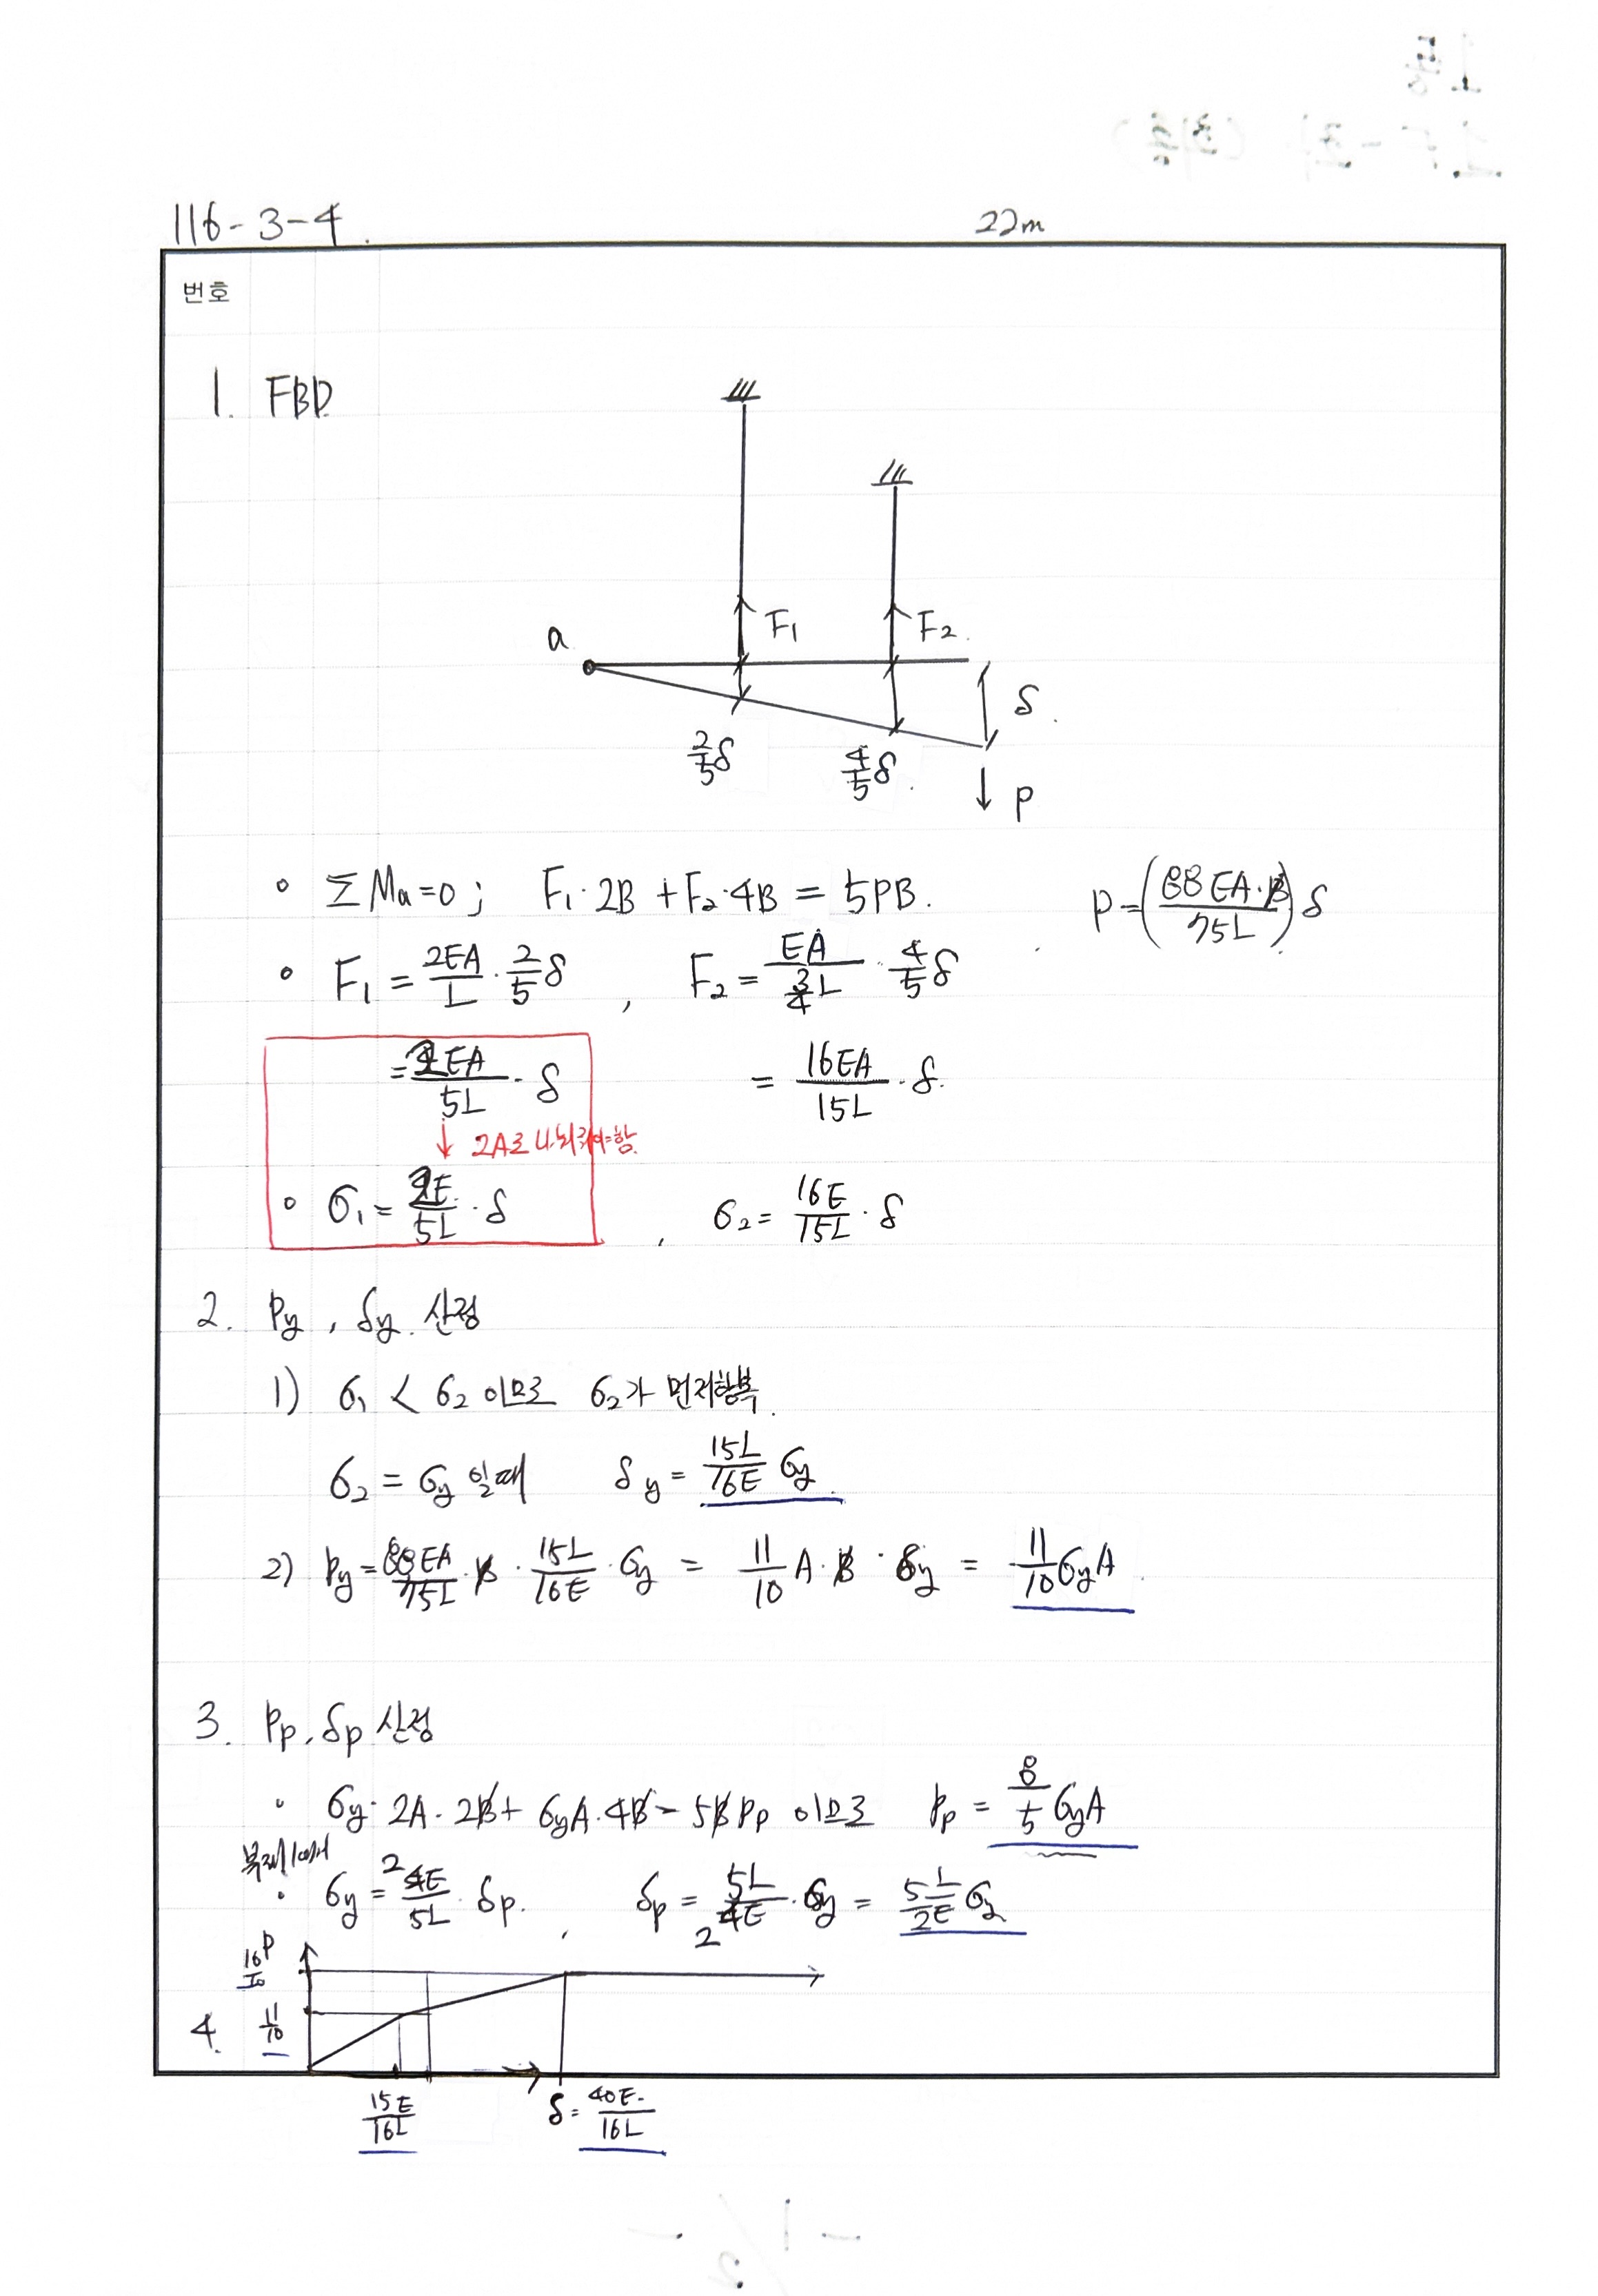 116-3-4.
22m
번호
1. FBD
a
F₁
F₂.
δ.
2/5 δ
4/5 δ.
P
∘ ΣMa=0 ; F₁·2B + F₂·4B = 5PB.
P=(88EA·B/75L)δ
∘ F₁ = 2EA/L · 2/5 δ , F₂ = EA/(3/4 L) · 4/5 δ
= 16EA/15L · δ.
↓ 2A로 나눠줘야함.
∘ σ₁ = 2E/5L · δ , σ₂ = 16E/15L · δ
2. Py, δy. 산정
1) σ₁ < σ₂ 이므로 σ₂가 먼저항복.
σ₂ = σy 일때 δy = 15L/16E σy
2) Py = 88EA/75L · B · 15L/16E · σy = 11/10 A·B·σy = 11/10 σyA
3. Pp, δp 산정
∘ σy·2A·2B + σyA·4B = 5B Pp 이므로 Pp = 8/5 σyA
부재1에서
∘ σy = 2E/5L · δp. , δp = 5L/2E · σy = 5L/2E σy
P
16/10
4. 11/10
15E/16L
δ = 40E/16L